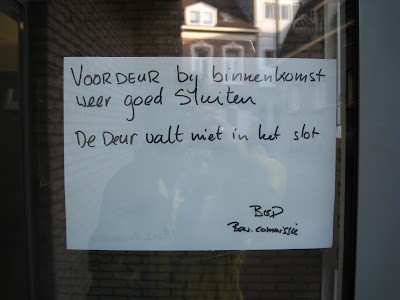 VOORDEUR by binnenkomst
weer goed Sluiten
De Deur valt niet in het slot
BvD
Bew. commissie